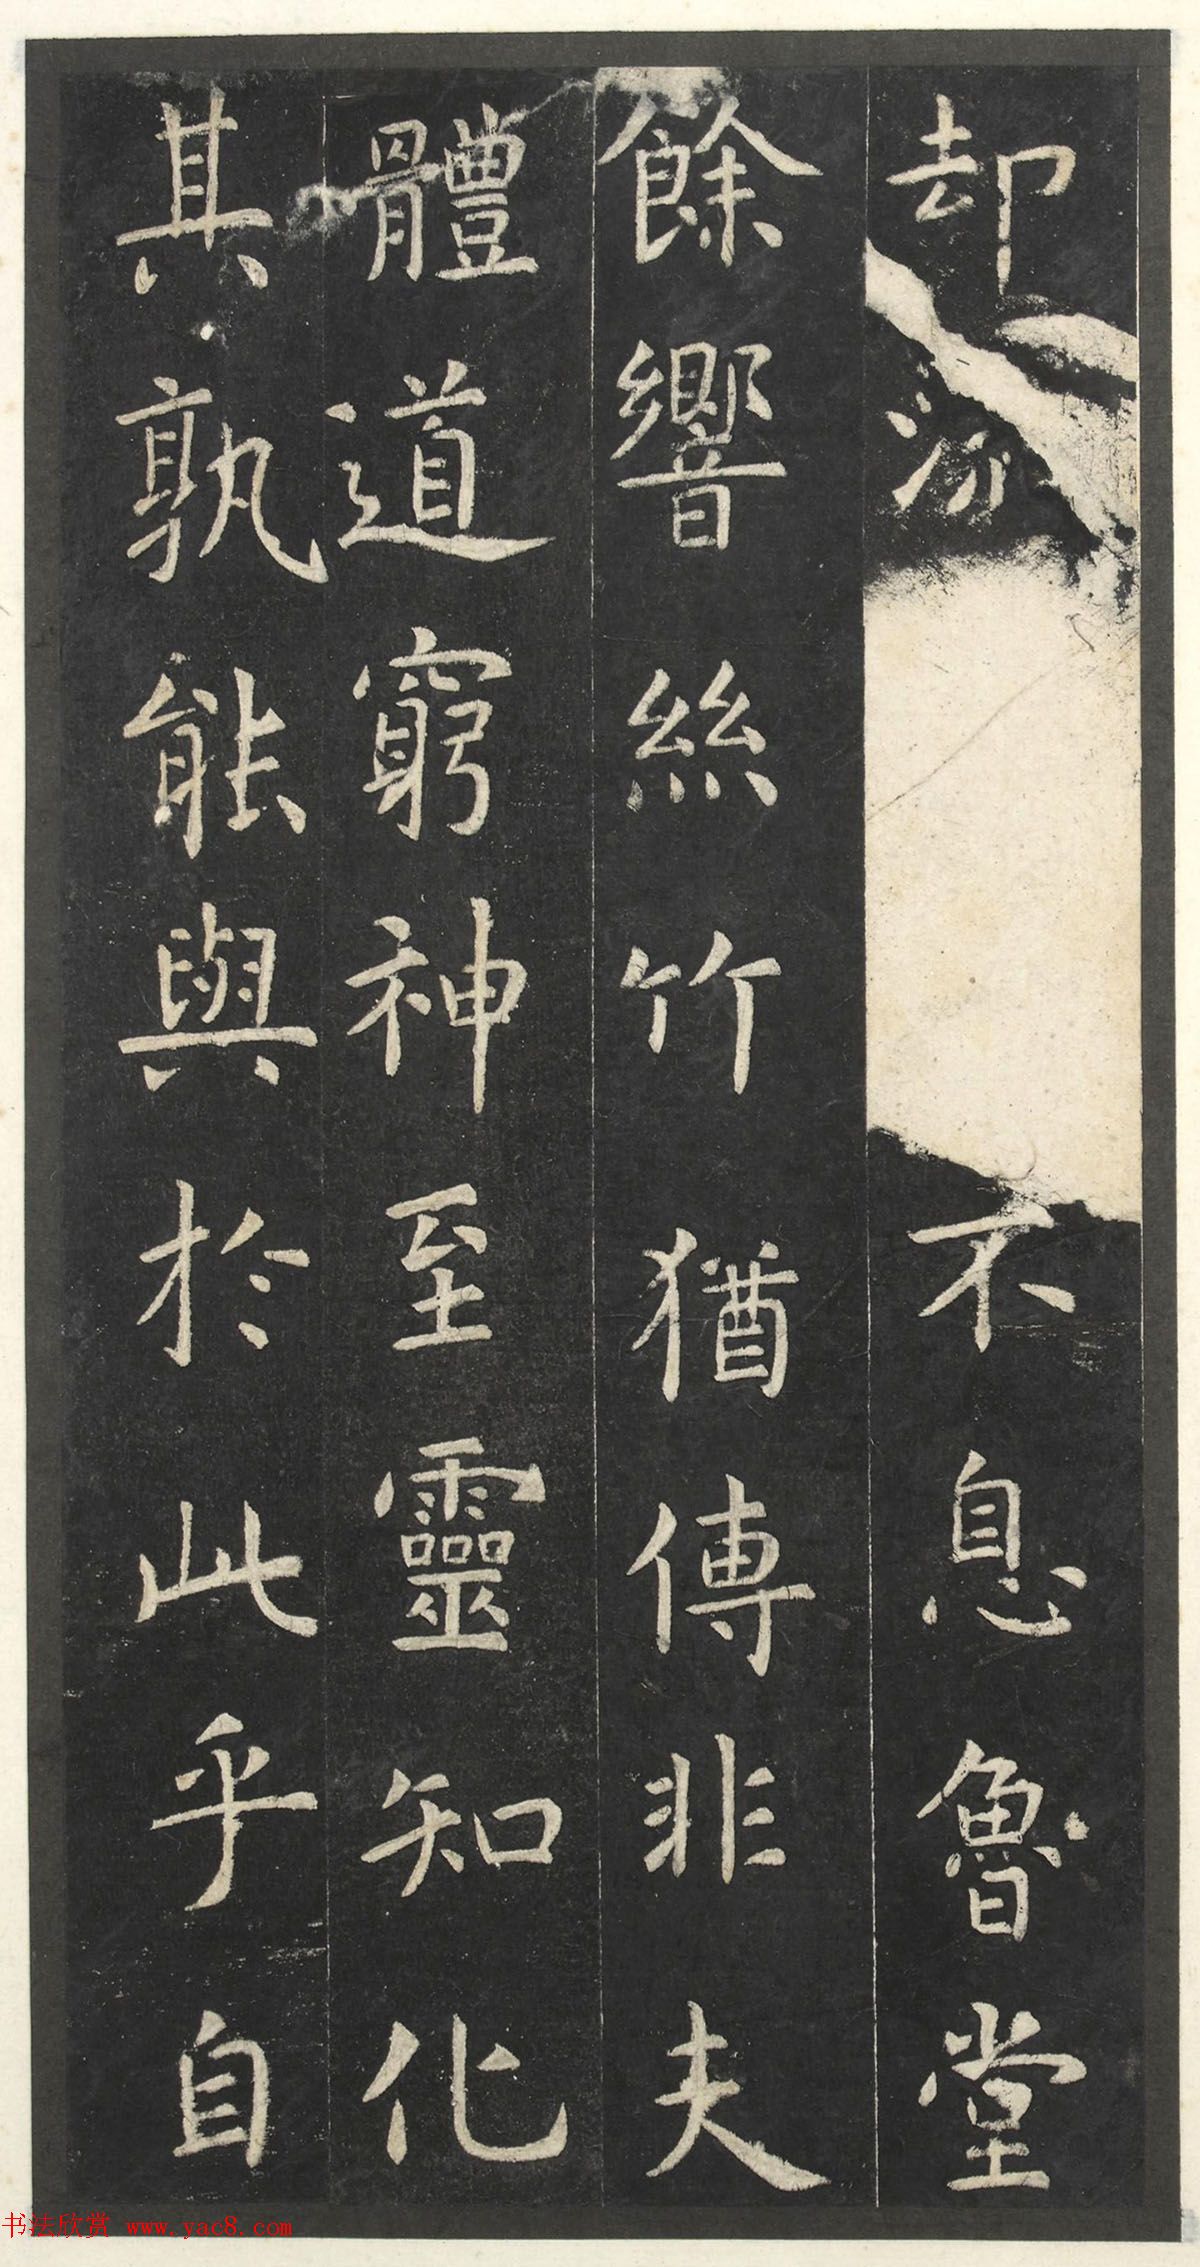 却 不息魯堂
餘響絲竹猶傳非夫
體道窮神至靈知化
其孰能與於此乎自
书法欣赏 www.yac8.com